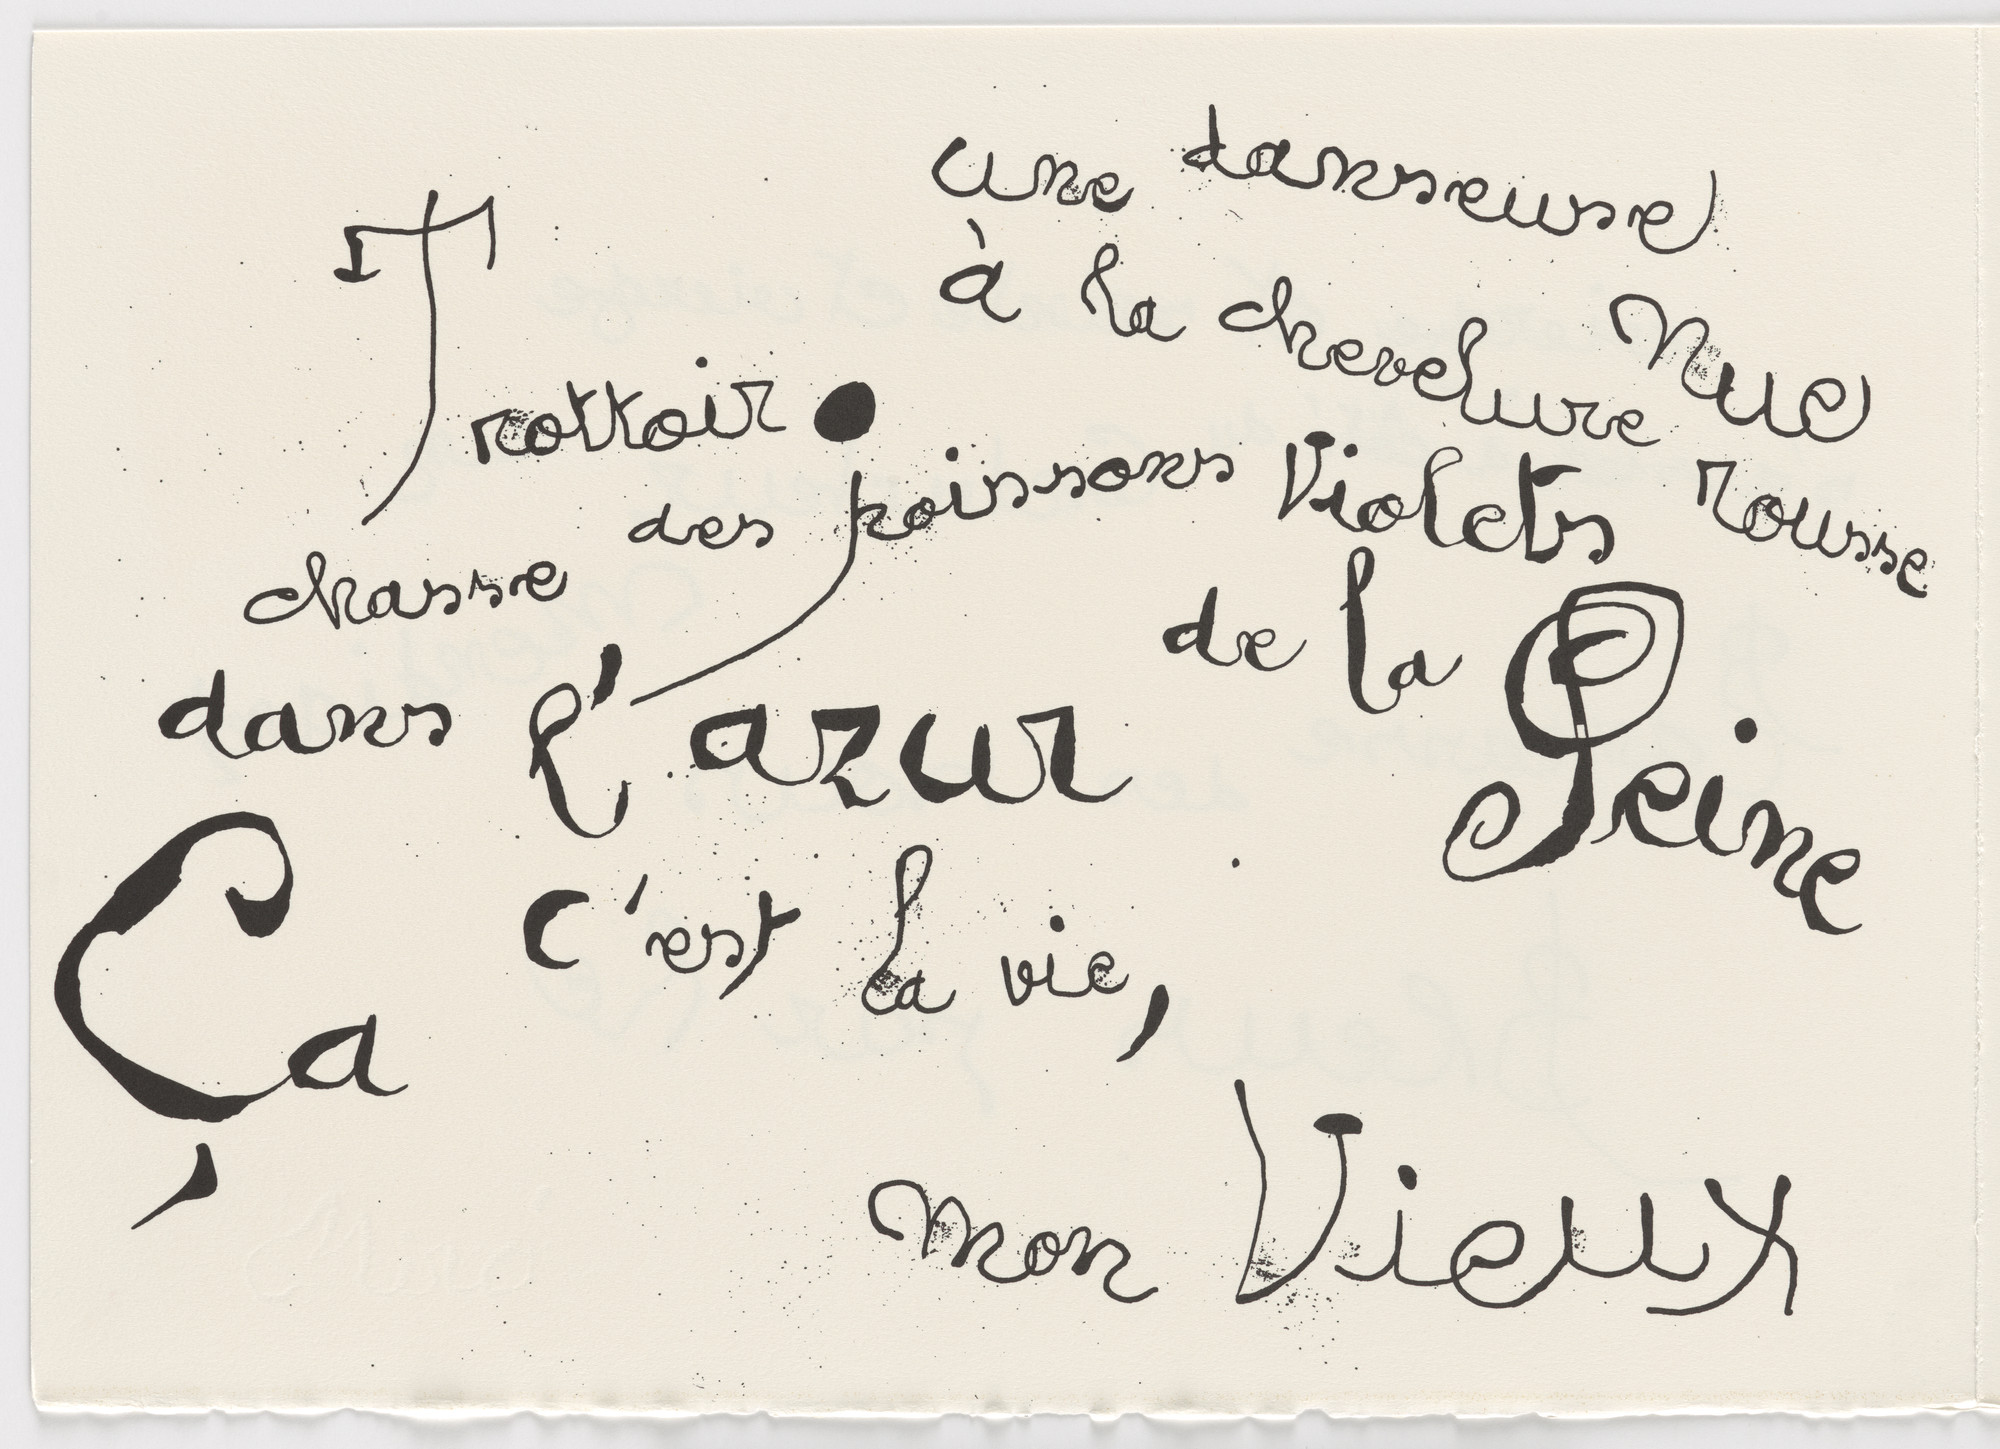 Trottoir.
une danseuse
à la chevelure
Nue
rousse
chasse des poissons Violets
dans l'azur
de la Seine
Ça
c'est la vie,
mon Vieux